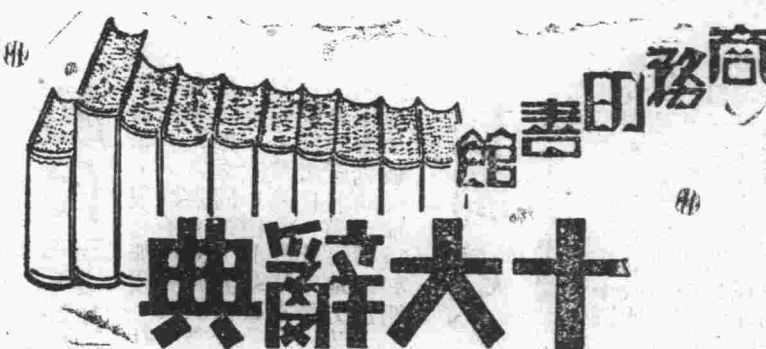 商務印書館
十大辭典